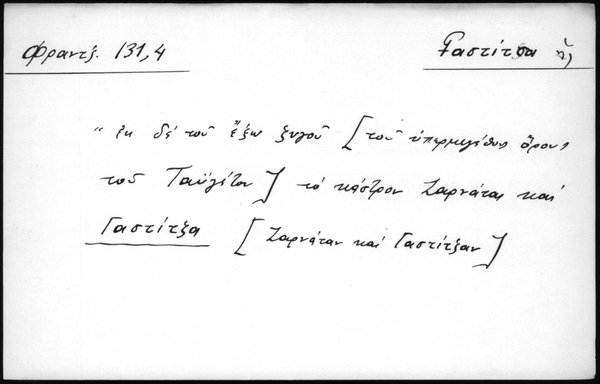 Φραντζ. 131,4
Γαστίτσα ἡ
“ ἐκ δὲ τοῦ ἔξω ζυγοῦ [τοῦ ὑπερμεγέθους ὄρους
τοῦ Ταϋγέτου] τὸ κάστρον Ζαρνάται καὶ
Γαστίτζα [Ζαρνάταν καὶ Γαστίτζαν]